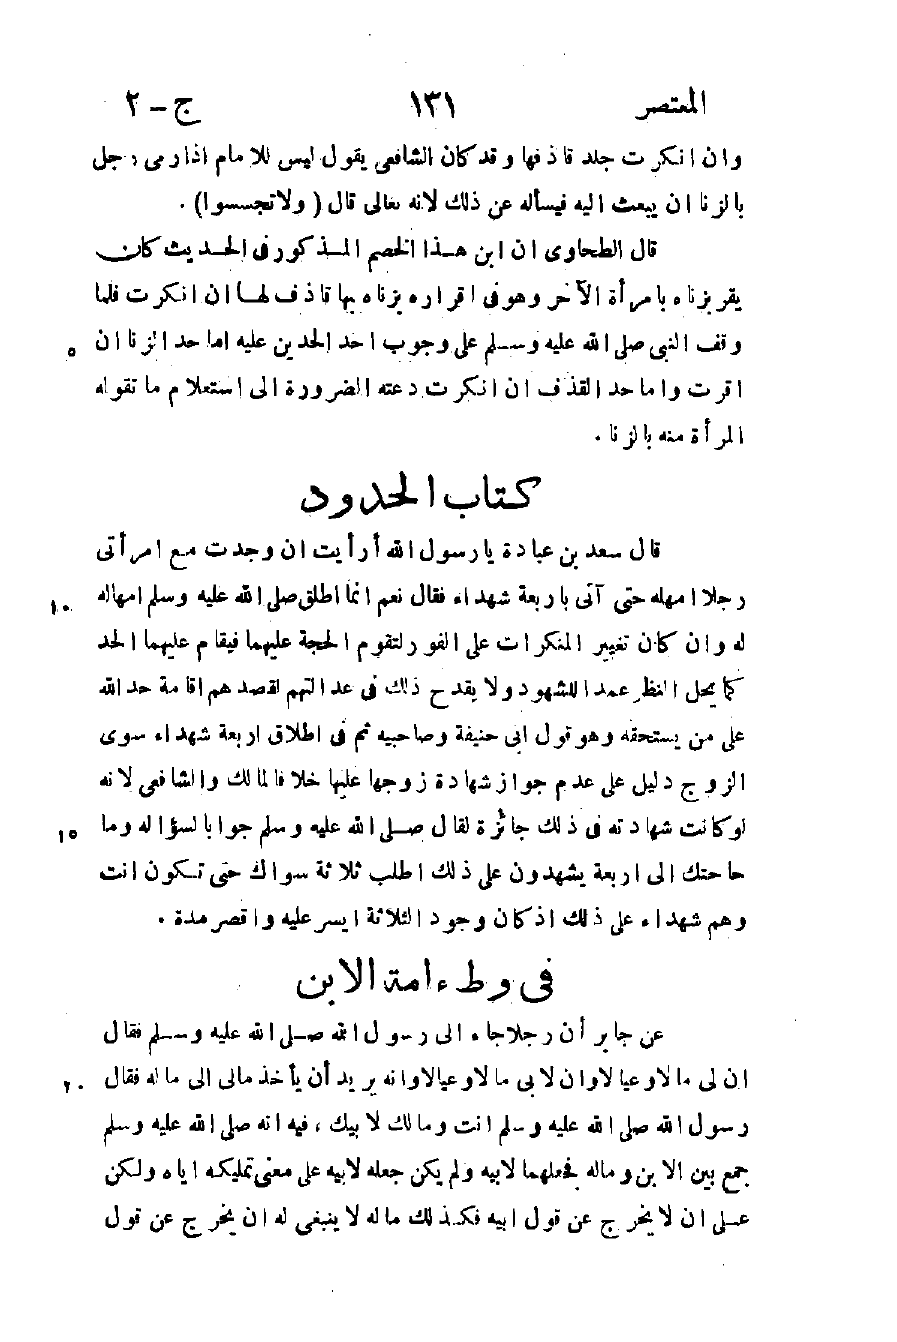 المعتصر ١٣١ ج - ٢
وان انكرت جلد قاذفها وقد كان الشافعى يقول ليس للامام اذا رمى رجل
بالزنا ان يبعث اليه فيسأله عن ذلك لانه تعالى قال ( ولا تجسسوا ) .
قال الطحاوى ان ابن هذا الخصم المذكور فى الحديث كان
يقر بزناه بامرأة الآخر وهو فى اقراره بزناه بها قاذف لها ان انكرت فلما
وقف النبى صلى الله عليه وسلم على وجوب احد الحدين عليه اما حد الزنا ان ٥
اقرت واما حد القذف ان انكرت دعته الضرورة الى استعلام ما تقوله
المرأة منه بالزنا .
كتاب الحدود
قال سعد بن عبادة يا رسول الله أرأيت ان وجدت مع امرأتى
رجلا امهله حتى آتى باربعة شهداء فقال نعم انما اطلق صلى الله عليه وسلم امهاله ١٠
له وان كان تغيير المنكرات على الفور لتقوم الحجة عليهما فيقام عليهما الحد
كما يحل النظر عمدا للشهود ولا يقدح ذلك فى عدالتهم لقصدهم اقامة حد الله
على من يستحقه وهو قول ابى حنيفة وصاحبيه ثم فى اطلاق اربعة شهداء سوى
الزوج دليل على عدم جواز شهادة زوجها عليها خلافا لمالك والشافعى لانه
لو كانت شهادته فى ذلك جائزة لقال صلى الله عليه وسلم جوابا لسؤاله وما ١٥
حاجتك الى اربعة يشهدون على ذلك اطلب ثلاثة سواك حتى تكون انت
وهم شهداء على ذلك اذ كان وجود الثلاثة ايسر عليه واقصر مدة .
فى وطء امة الابن
عن جابر أن رجلا جاء الى رسول الله صلى الله عليه وسلم فقال
ان لى مالا وعيالا وان لابى مالا وعيالا وانه يريد أن يأخذ مالى الى ماله فقال ٢٠
رسول الله صلى الله عليه وسلم انت ومالك لابيك ، فيه انه صلى الله عليه وسلم
جمع بين الابن وماله فجعلهما لابيه ولم يكن جعله لابيه على معنى تمليكه اياه ولكن
على ان لا يخرج عن قول ابيه فكذلك ماله لا ينبغى له ان يخرج عن قول